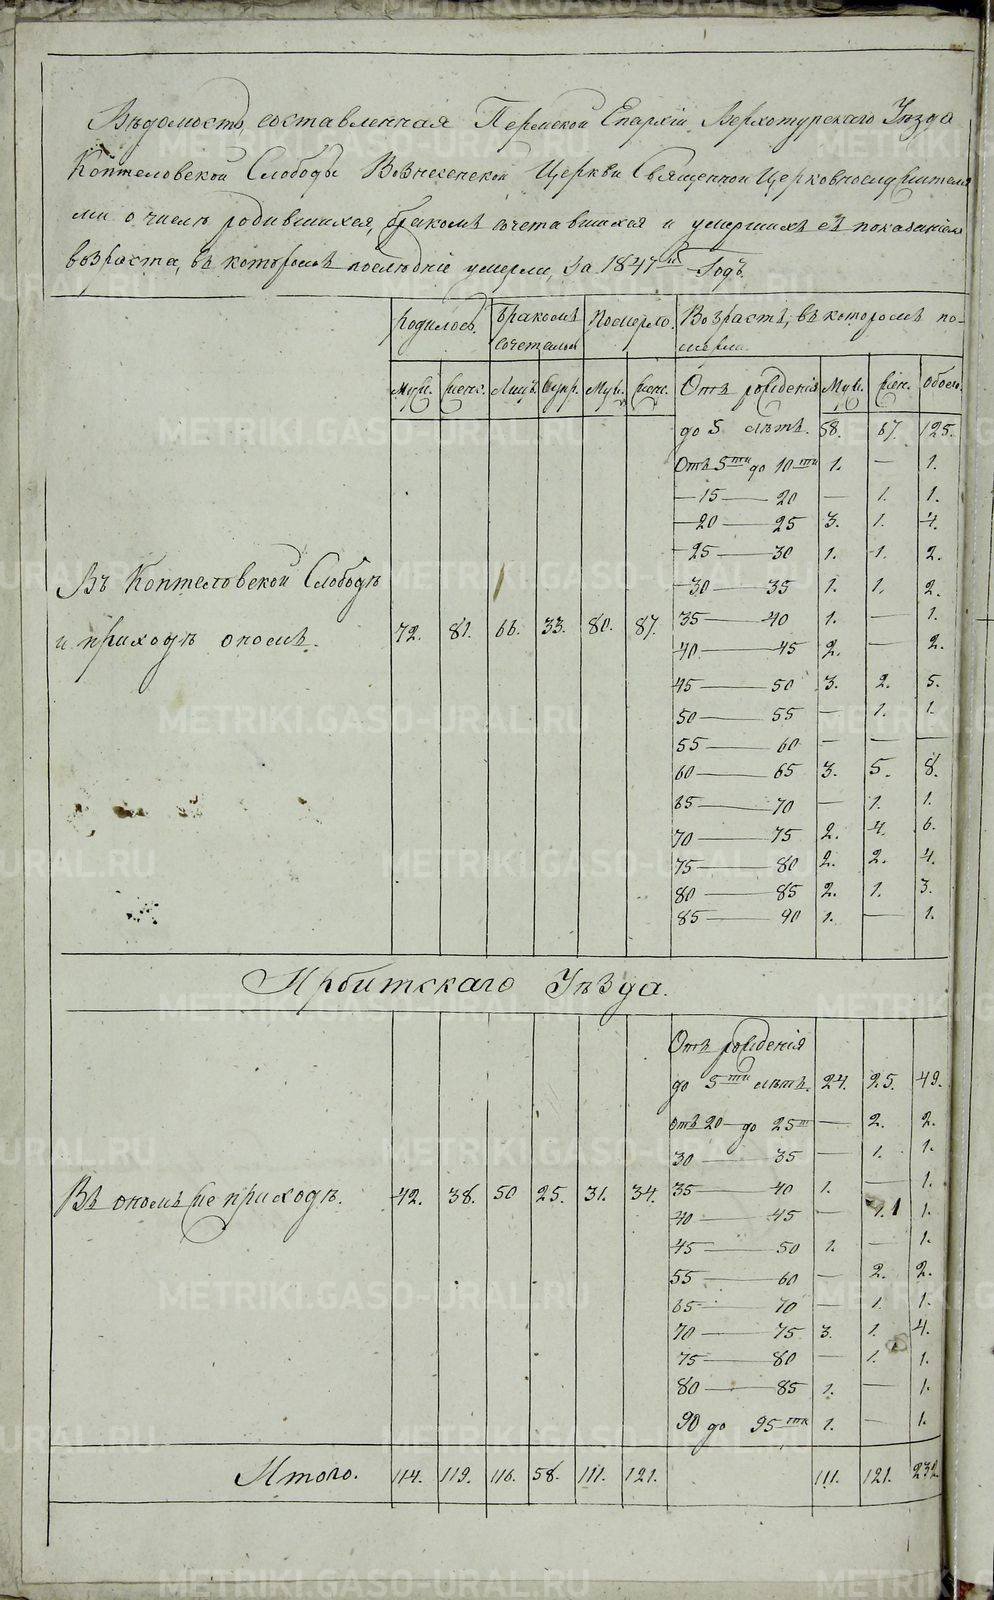 Вѣдомость, составленная Пермской Епархіи Верхотурскаго Уѣзда
Коптеловской Слободы Вознесенской Церкви Священноцерковнослужителя
ми о числѣ родившихся, бракомъ сочетавшихся и умершихъ съ показаніемъ
возраста, въ которомъ послѣдніе умерли, за 1847й Годъ.
Родилось. Бракомъ сочетались Померло. Возрастъ, въ которомъ по-
мерли.
Муж. Женс. Лицъ. Супр. Муж. Женс. Отъ рожденія Муж. Жен. Обоего.
до 5 лѣтъ. 58. 67. 125.
Отъ 5ти до 10ти 1. — 1.
— 15 — 20 — 1. 1.
— 20 — 25 3. 1. 4.
— 25 — 30 1. 1. 2.
— 30 — 35 1. 1. 2.
Въ Коптеловской Слободѣ
и приходѣ ономъ. 72. 81. 66. 33. 80. 87.
35 — 40 1. — 1.
40 — 45 2. — 2.
45 — 50 3. 2. 5.
50 — 55 — 1. 1.
55 — 60 — — —
60 — 65 3. 5. 8.
65 — 70 — 1. 1.
70 — 75 2. 4. 6.
75 — 80 2. 2. 4.
80 — 85 2. 1. 3.
85 — 90 1. — 1.
Ирбитскаго Уѣзда.
Отъ рожденія
до 5ти лѣтъ. 24. 25. 49.
отъ 20 до 25ти — 2. 2.
30 — 35 — 1. 1.
Въ ономъ же приходѣ. 42. 38. 50 25. 31. 34.
35 — 40 1. — 1.
40 — 45 — 1. 1 1.
45 — 50 1. — 1.
55 — 60 — 2. 2.
65 — 70 — 1. 1.
70 — 75 3. 1. 4.
75 — 80 — 1. 1.
80 — 85 1. — 1.
90 до 95ти 1. — 1.
Итого. 114. 119. 116. 58. 111. 121. 111. 121. 232.
METRIKI.GASO-URAL.RU